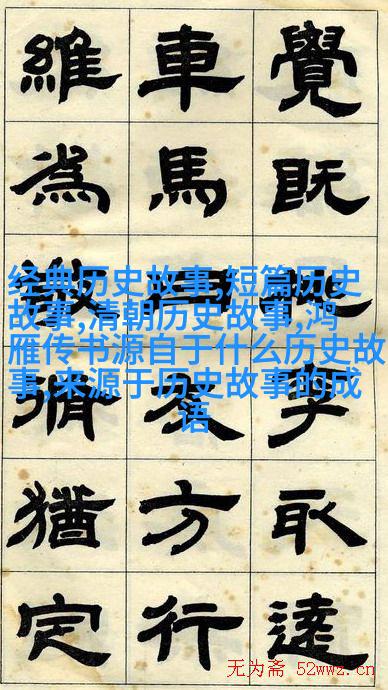 经典历史故事,短篇历史
故事,清朝历史故事,鸿
雁传书源自于什么历史故
事,来源于历史故事的成
语
覺既李取
車馬方行
維為脩猶定
无为斋 52wwz.cn